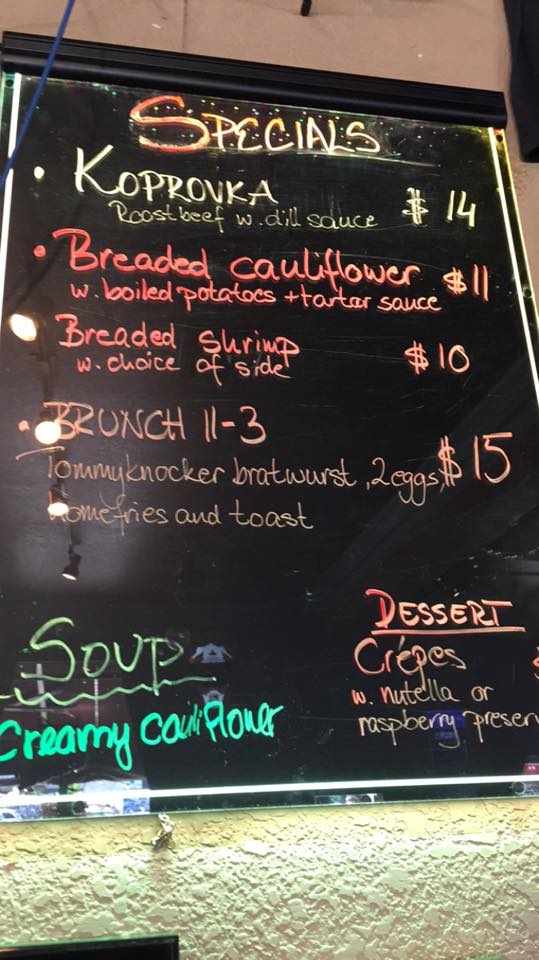 SPECIALS
• KOPROVKA $14
Roostbeef w. dill sauce
• Breaded cauliflower $11
w. boiled potatoes + tartar sauce
Breaded shrimp $10
w. choice of side
• BRUNCH 11-3
Tommyknocker bratwurst, 2eggs, $15
homefries and toast
SOUP
Creamy cauliflower
DESSERT
Crépes $
w. nutella or
raspberry preserv